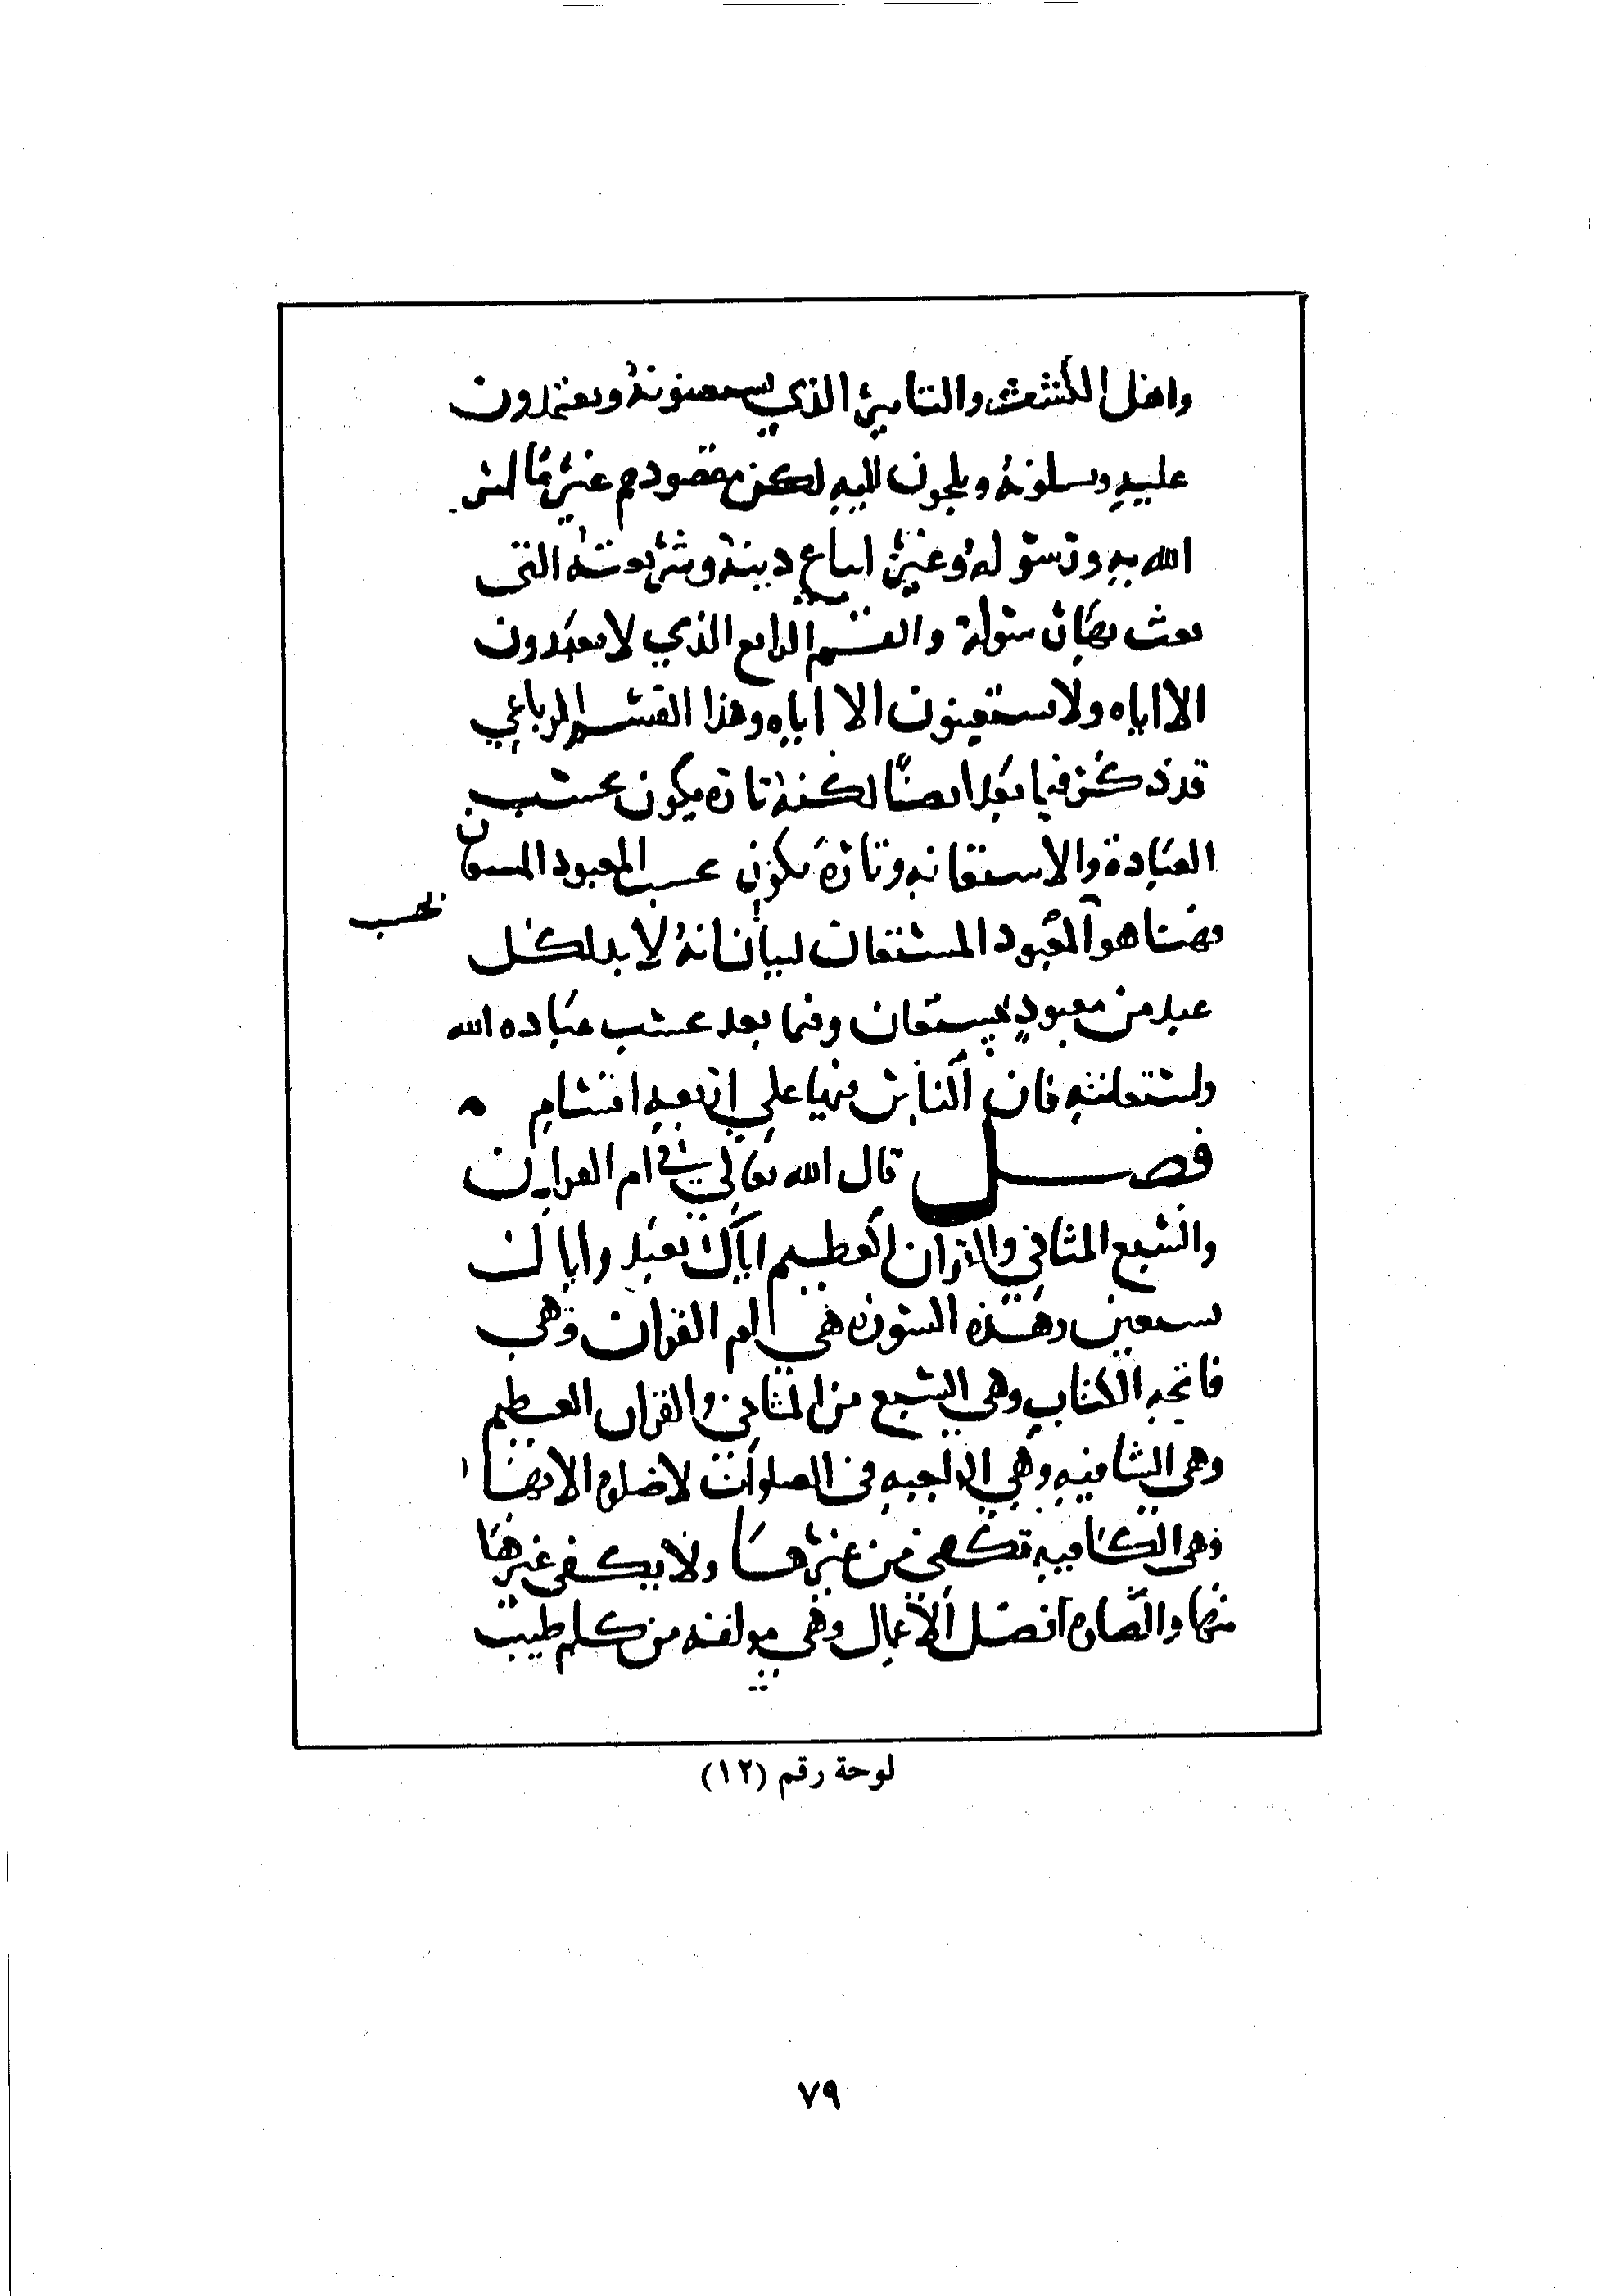 واهل الكشف والتاثير الذي يستعينونه ويعتمدون
عليه ويسلونه ويلجون اليه لكن مقصودهم غير ما امر
الله به ورسوله وغير اتباع دينه وشريعته التي
بعث بها رسوله والقسم الرابع الذي لا يعبدون
الا اياه ولا يستعينون الا اياه وهذا القسم الرباعي
قد ذكر فيما بعد ايضا لكنه تارة يكون بحسب
العبادة والاستعانه وتارة يكون بحسب المعبود المستعان
فهنا هو المعبود المستعان لبيان انه لا بد لكل
بحسب
عبد من معبود مستعان وفيما بعد بحسب عباده الله
واستعانته فان الناس فيها علي اربعه اقسام
فصل قال الله تعالي في ام القران
والسبع المثاني والقران العظيم اياك نعبد واياك
نستعين وهذه السورة هي ام القران وهي
فاتحه الكتاب وهي السبع من المثاني والقران العظيم
وهي الشافيه وهي الواجبه في الصلوات لا صلوة الا بها
وهي الكافيه تكفي من غيرها ولا يكفي غيرها
منها والصلاة افضل الاعمال وهي مولفه من كلم طيب
لوحة رقم (١٢)
٧٩